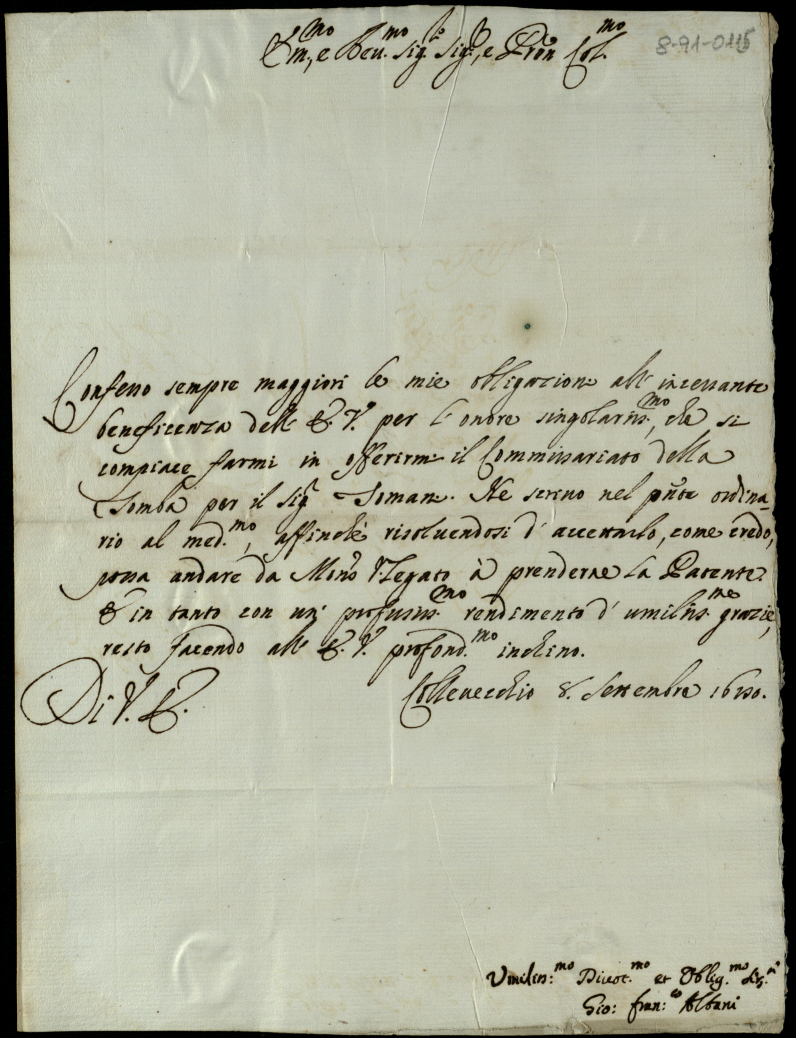 Em.mo, e Reu.mo Sig.r Sig.r, e Pron Col.mo
8-91-0115
Confesso sempre maggiori le mie obligazioni all' incessante
beneficenza dell' E. V. per l' onore singolariss.mo, che si
compiace farmi in offerirmi il Commissariato della
Tomba per il Sig.r Tomani. Ne scrivo nel pnte ordina-
rio al med.mo, affinché risoluendosi d' accettarlo, come credo,
possa andare da Mons. V.Legato à prenderne la Patente.
E in tanto con un' profusiss.mo rendimento d' umiliss.me grazie,
resto facendo all' E. V. profond.mo inchino.
Di V. E.
Colleuecchio 8. Settembre 1690.
Vmiliss:mo Diuot.mo et Oblig.mo
Gio: Fran:co Albani